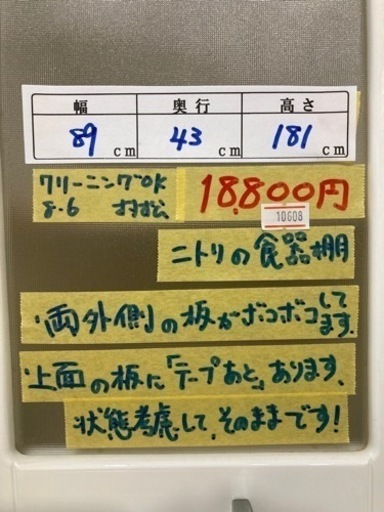 幅 奥行 高さ
89cm 43cm 181cm
クリーニングOK 18,800円
8.6
10608
ニトリの食器棚
両外側の板がボコボコしてます。
上面の板に「テープあと」あります、
状態考慮して、そのままです!